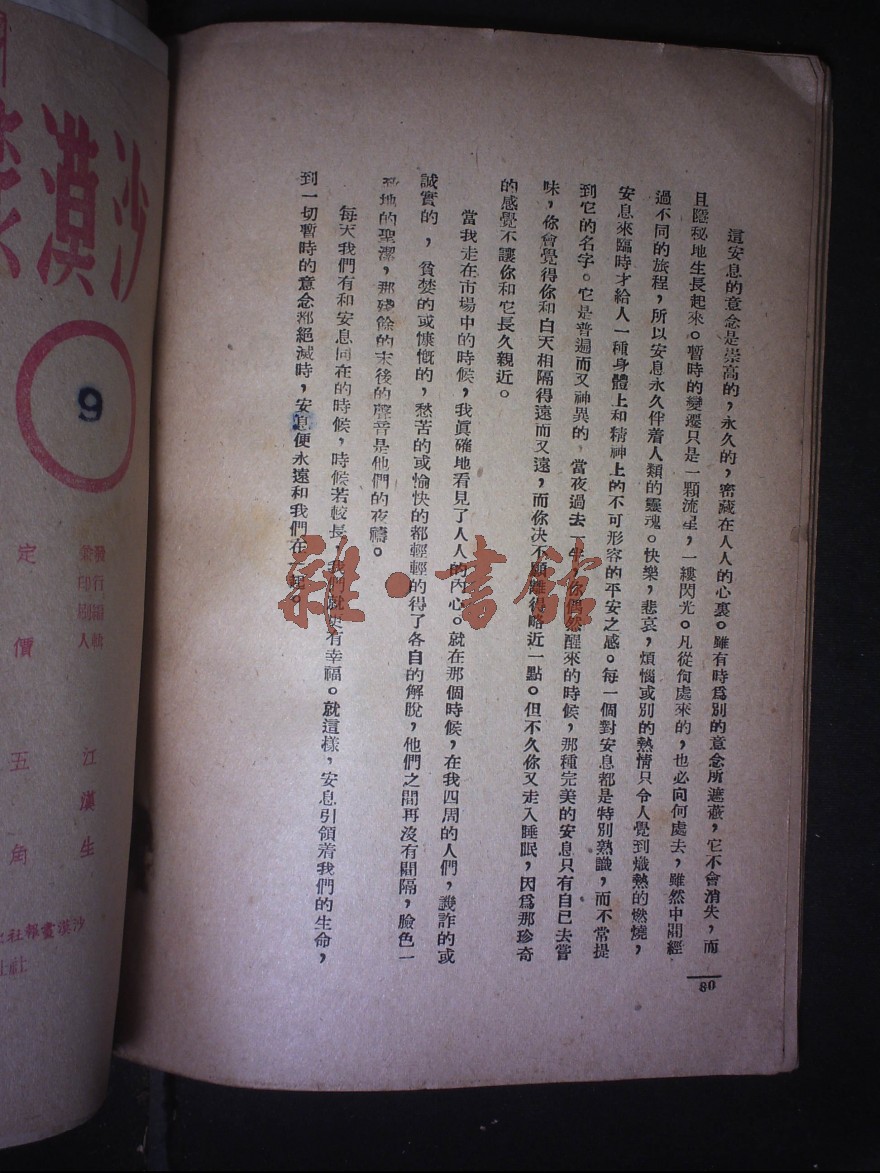 這安息的意念是崇高的，永久的，密藏在人人的心裏。雖有時爲別的意念所遮蔽，它不會消失，而
且隱秘地生長起來。暫時的變遷只是一顆流星，一縷閃光。凡從何處來的，也必向何處去，雖然中間經
過不同的旅程，所以安息永久伴着人類的靈魂。快樂，悲哀，煩惱或別的熱情只令人覺到熾熱的燃燒，
安息來臨時才給人一種身體上和精神上的不可形容的平安之感。每一個對安息都是特別熟識，而不常提
到它的名字。它是普遍而又神異的，當夜過去一半，你偶然醒來的時候，那種完美的安息只有自己去嘗
味，你會覺得你和白天相隔得遠而又遠，而你決不願離得略近一點。但不久你又走入睡眠，因爲那珍奇
的感覺不讓你和它長久親近。
當我走在市場中的時候，我眞確地看見了人人的內心。就在那個時候，在我四周的人們，譏詐的或
誠實的，貪婪的或慷慨的，愁苦的或愉快的都輕輕的得了各自的解脫，他們之間再沒有間隔，臉色一
地的聖潔，那殘餘的末後的聲音是他們的夜禱。
每天我們有和安息同在的時候，時候若較長，我們就更有幸福。就這樣，安息引領着我們的生命，
到一切暫時的意念都絕滅時，安息便永遠和我們在一起。
80
雜·書館
沙漠
9
發行編輯
兼印刷人
江漢生
定價五角
沙漠畫報社
社